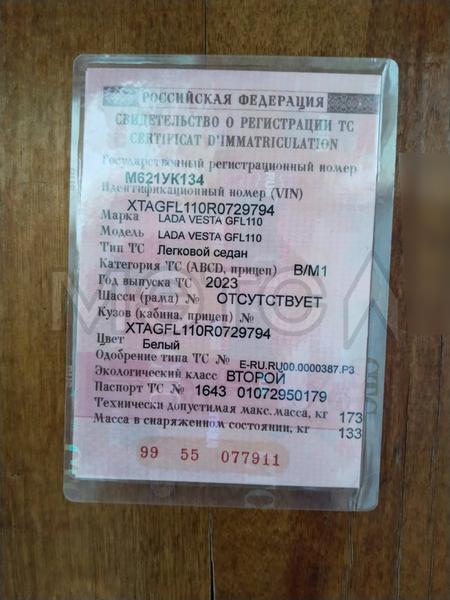 РОССИЙСКАЯ ФЕДЕРАЦИЯ
СВИДЕТЕЛЬСТВО О РЕГИСТРАЦИИ ТС
CERTIFICAT D'IMMATRICULATION
Государственный регистрационный номер
М621УК134
Идентификационный номер (VIN)
XTAGFL110R0729794
Марка LADA VESTA GFL110
Модель LADA VESTA GFL110
Тип ТС Легковой седан
Категория ТС (ABCD, прицеп) B/M1
Год выпуска ТС 2023
Шасси (рама) № ОТСУТСТВУЕТ
Кузов (кабина, прицеп) №
XTAGFL110R0729794
Цвет Белый
Одобрение типа ТС № E-RU.RU00.0000387.P3
Экологический класс ВТОРОЙ
Паспорт ТС № 1643 01072950179
Технически допустимая макс. масса, кг 173
Масса в снаряженном состоянии, кг 133
99 55 077911